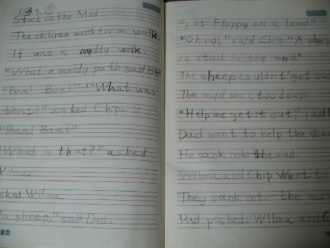 Stuck in the Mud
The children went for a walk.
It was a muddy walk.
"What a muddy path said
"Baa! Baa!" "What was
that?" asked Chip.
"Baa! Baa!"
"What is that?" asked
Wilma.
asked Wilma.
a sheep," said Dad.
"put Floppy on a lead!
"Oh no!" said Chip "A sheep
is stuck in the mud"
The sheep couldn't get out
The mud was too deep
"Help me get it out,"
Dad went to help the sheep
He sank into the mud
Wilma and Chip went to
They sank into the mud
Dad pushed. Wilma and